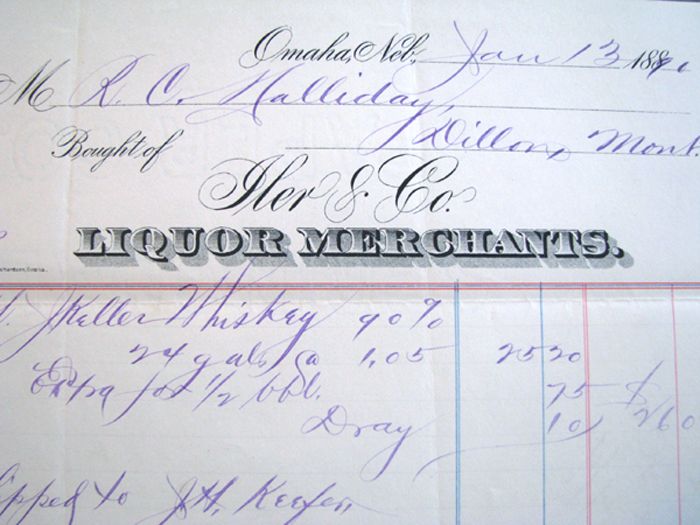 Omaha, Neb., Jan 13 1890
M R. C. Halliday,
Dillon, Mont
Bought of
Iler & Co.
LIQUOR MERCHANTS.
Keller Whiskey 90%
24 gals @ 1.05 25 20
Extra for 1/2 bbl. 75 $
Dray 10 260
to J.H. Keefer